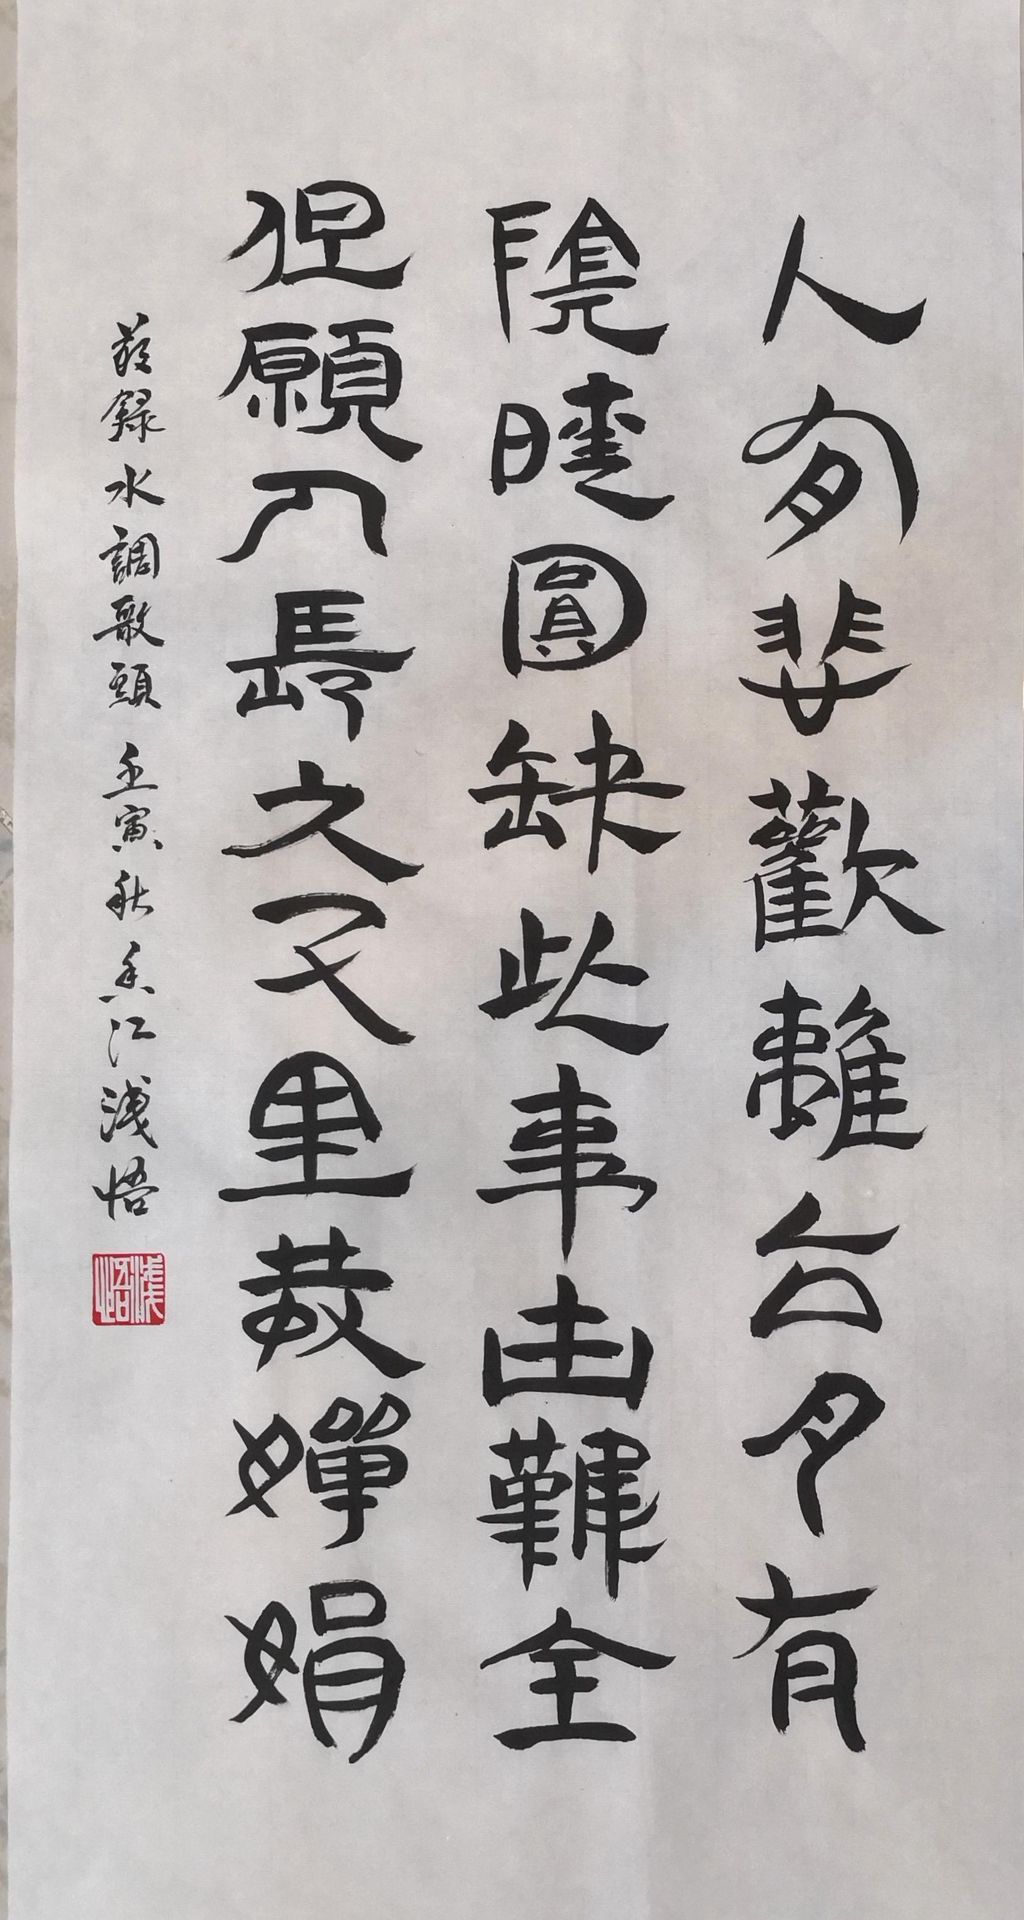 人有悲歡離合月有
陰晴圓缺此事古難全
但願人長久千里共嬋娟
節錄水調歌頭 壬寅秋香江淺悟
淺悟